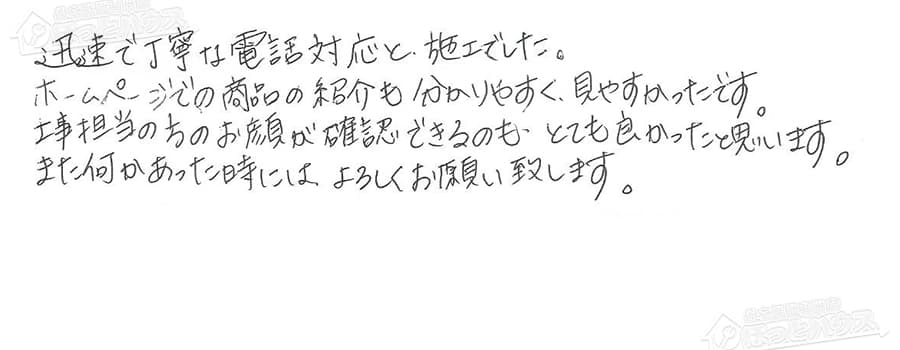 迅速で丁寧な電話対応と、施工でした。
ホームページでの商品の紹介も分かりやすく、見やすかったです。
工事担当の方のお顔が確認できるのも、とても良かったと思います。
また何かあった時には、よろしくお願い致します。